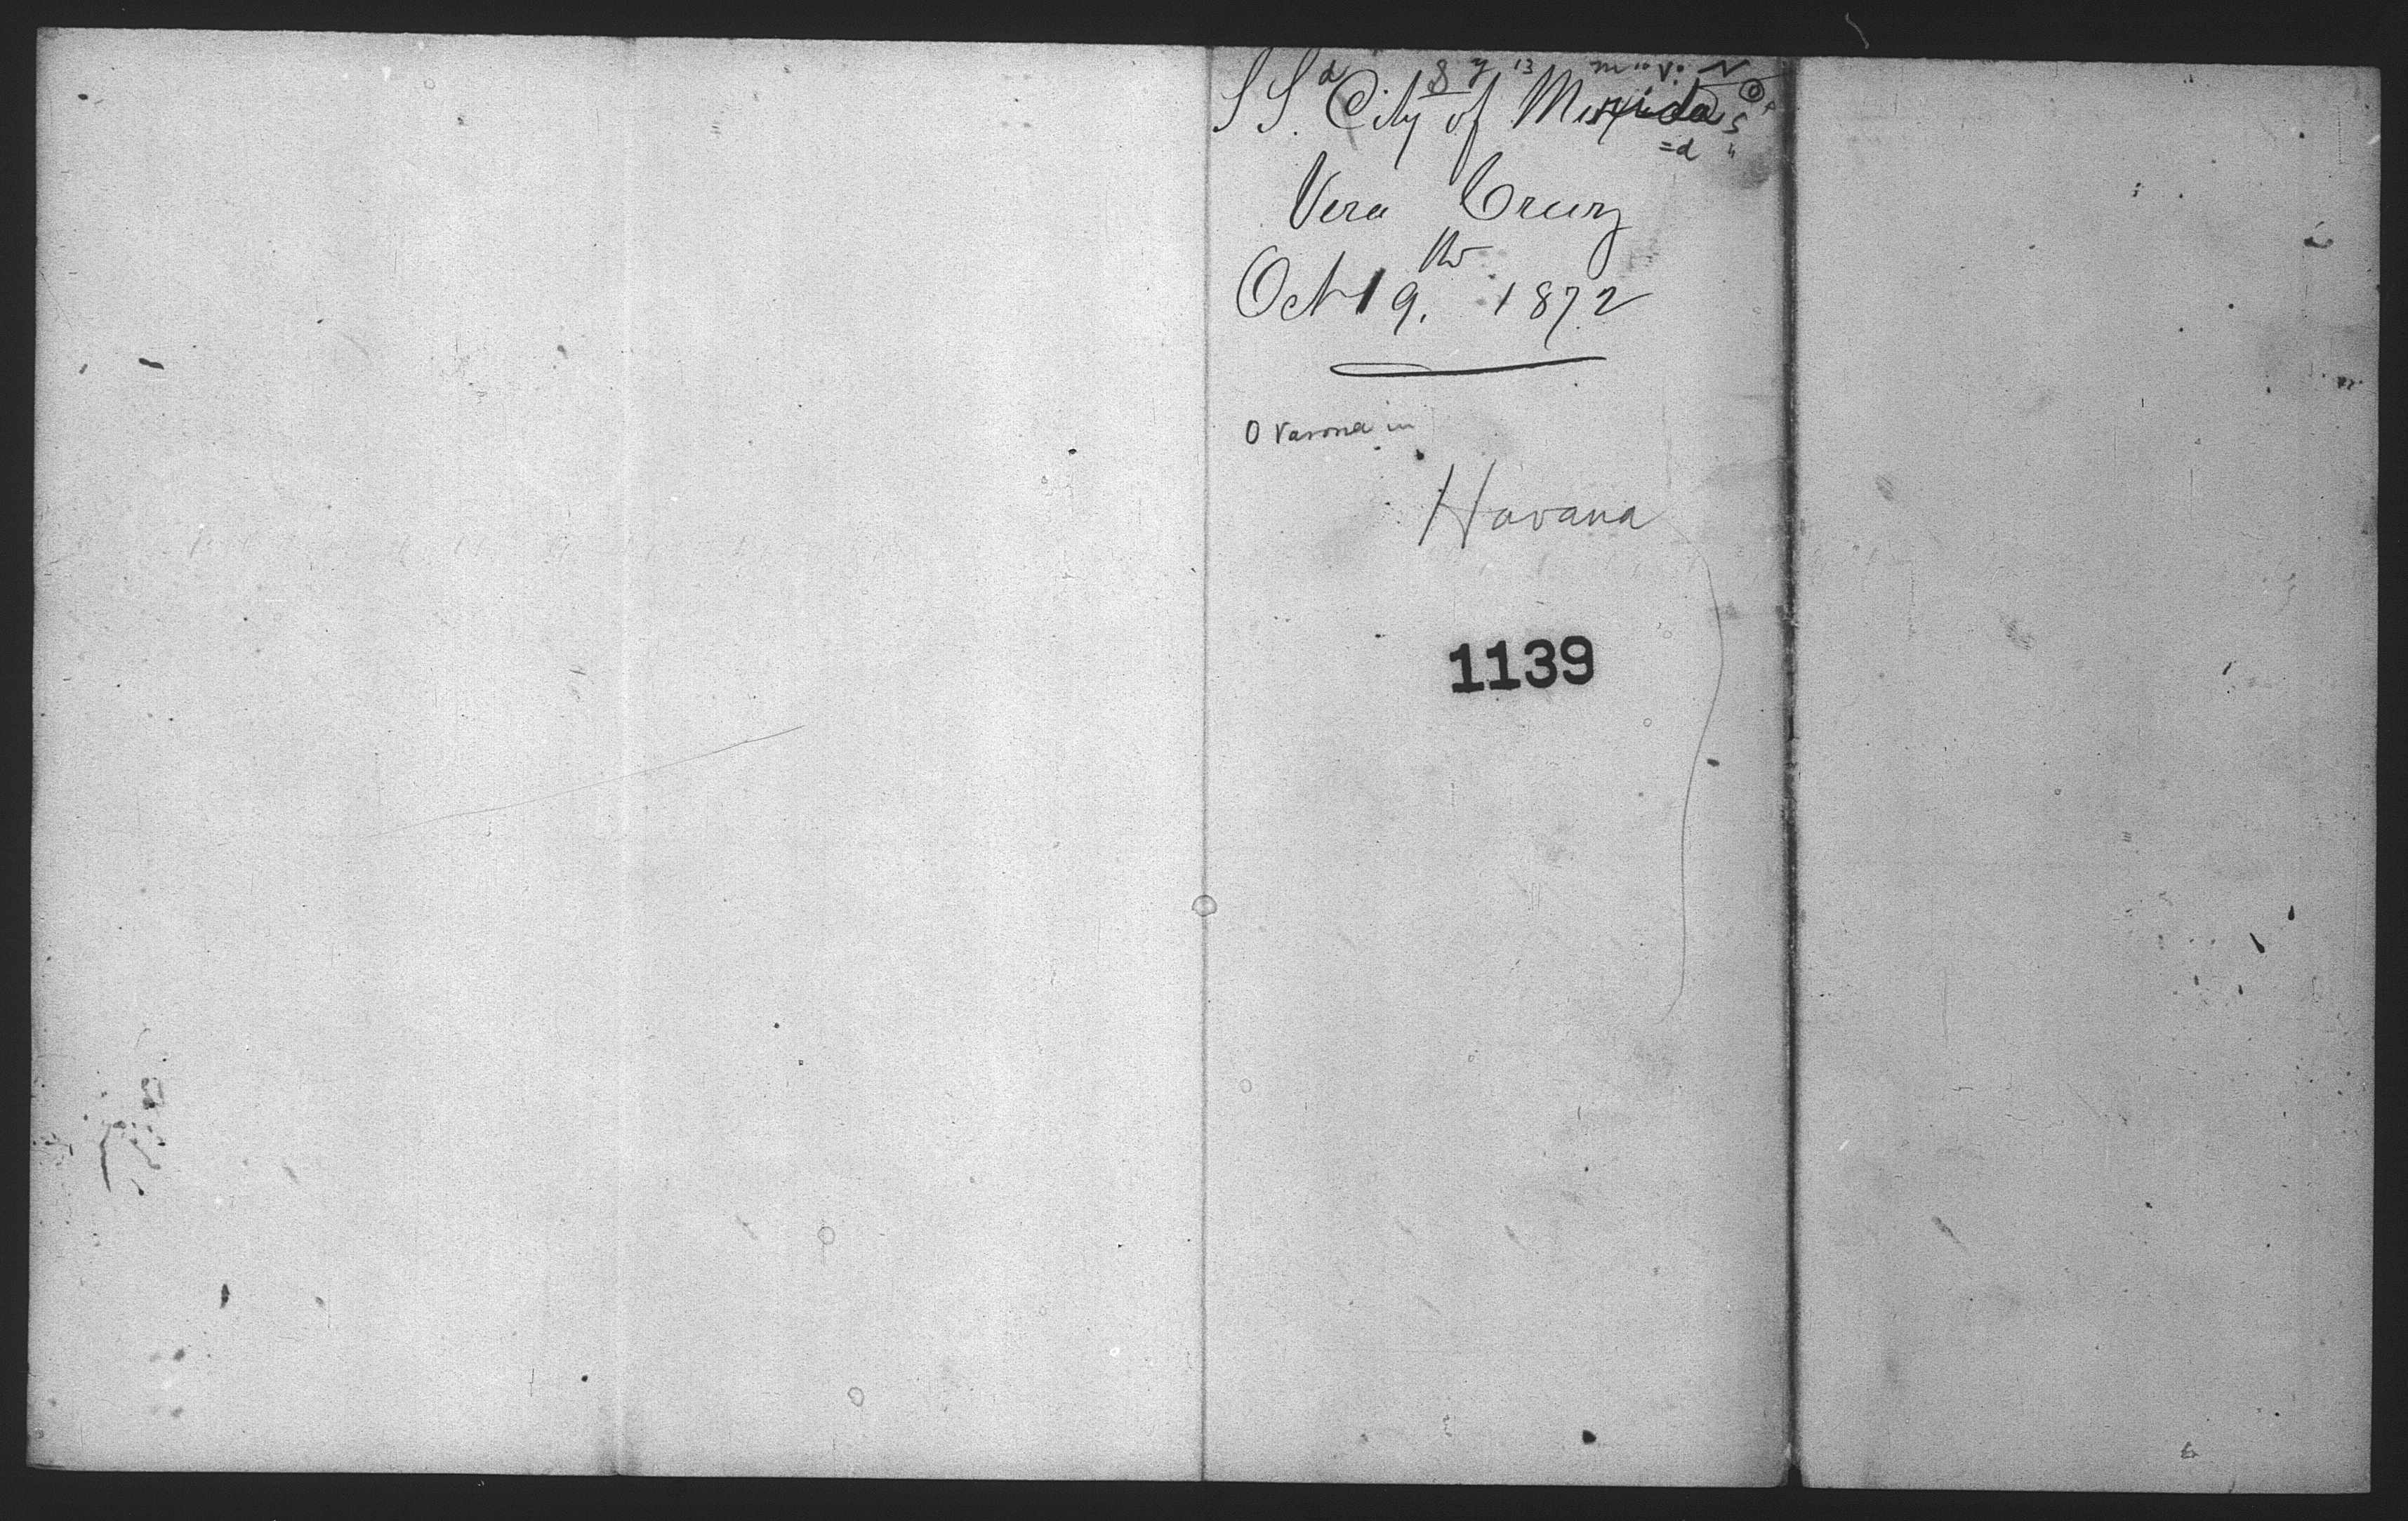 S S. City of Merida
Vera Cruz
Oct 19th. 1872
Havana
1139